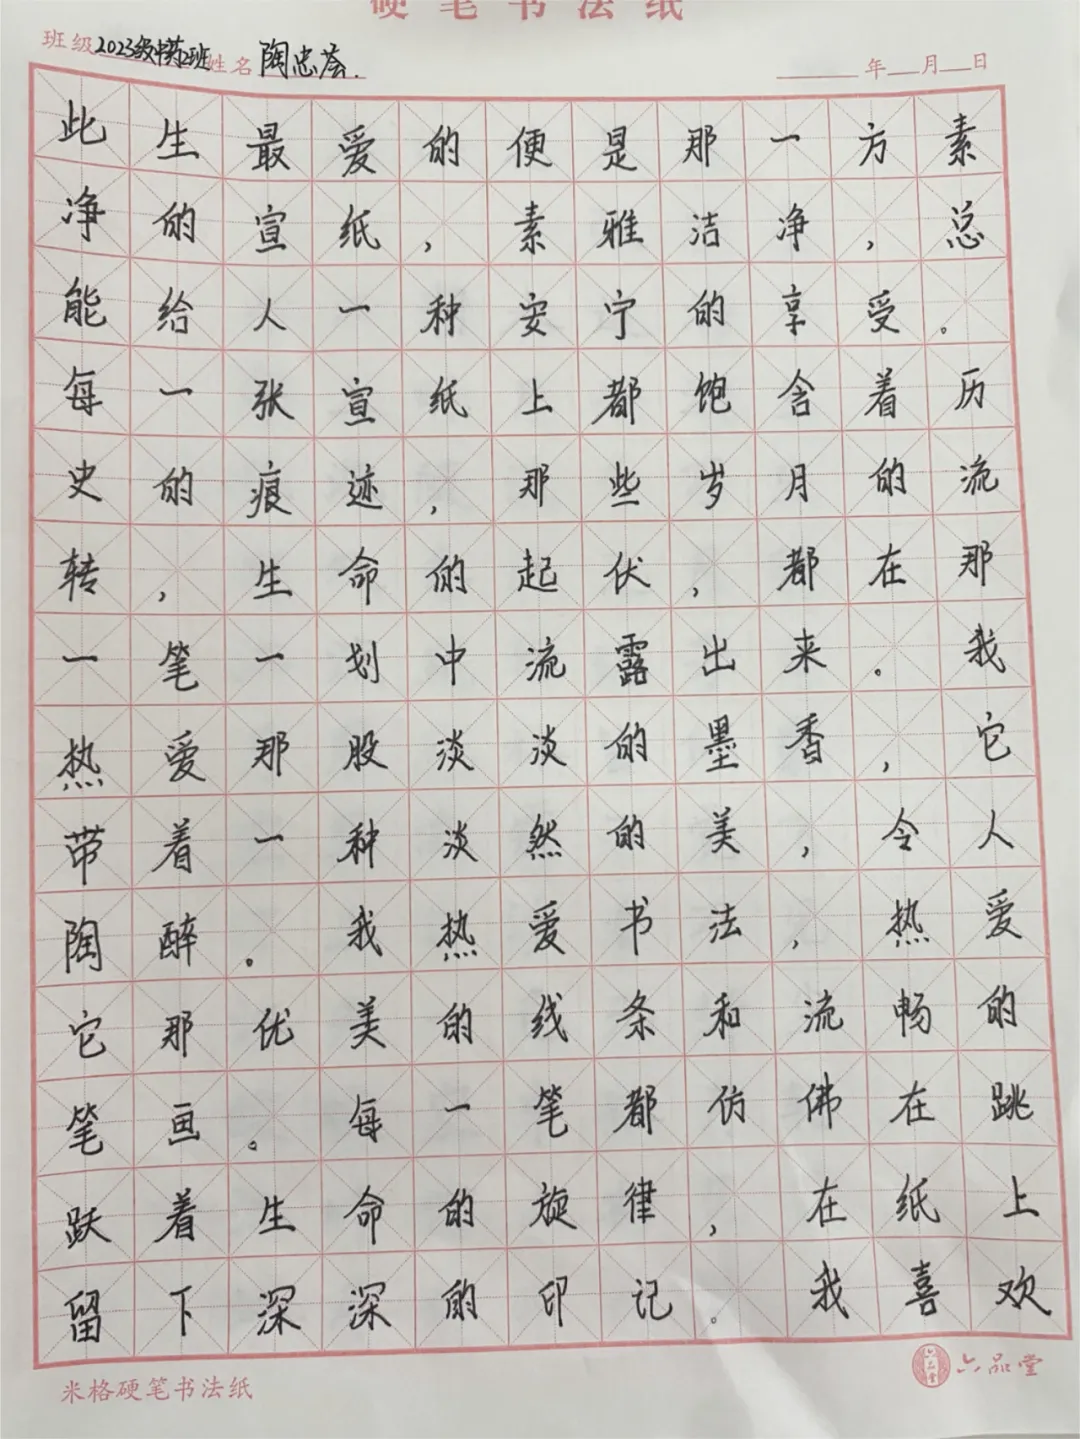 硬笔书法纸
班级2023级中药2班 姓名陶忠荟. 年 月 日
此生最爱的便是那一方素
净的宣纸，素雅洁净，总
能给人一种安宁的享受。
每一张宣纸上都饱含着历
史的痕迹，那些岁月的流
转，生命的起伏，都在那
一笔一划中流露出来。我
热爱那股淡淡的墨香，它
带着一种淡然的美，令人
陶醉。我热爱书法，热爱
它那优美的线条和流畅的
笔画。每一笔都仿佛在跳
跃着生命的旋律，在纸上
留下深深的印记。我喜欢
米格硬笔书法纸 六品堂 六品堂